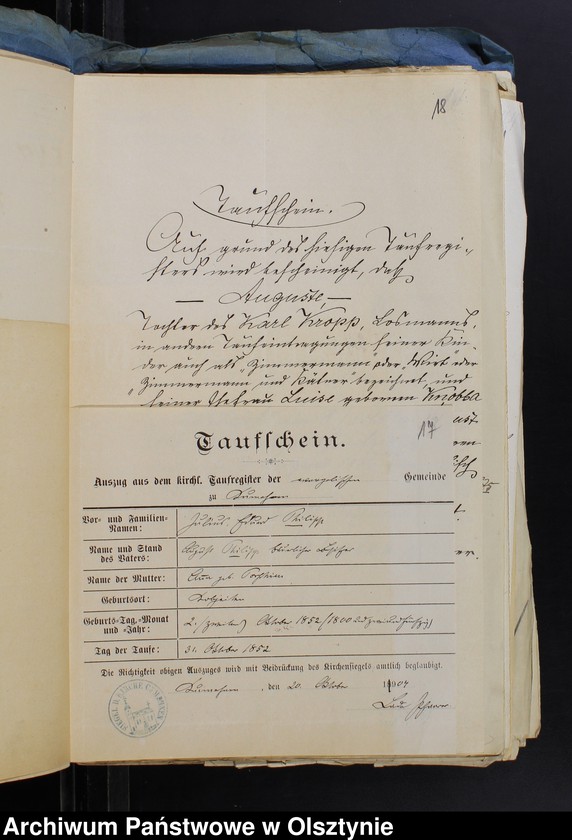 18
Taufschein.
Auf grund des hiesigen Taufregi-
sters wird bescheinigt, daß
— Auguste, —
Tochter des Karl Kropp, Losmanns,
in andern Taufeintragungen seiner Kin-
der auch als „Zimmermann" oder „Wirt" oder
„Zimmermann und Kätner" bezeichnet, und
seiner Ehefrau Luise geborenen Knobba
17
Taufschein.
Auszug aus dem kirchl. Taufregister der evangelischen Gemeinde
zu
Vor- und Familien-Namen: Julius Eduard Philipp
Name und Stand des Vaters: August Philipp
Name der Mutter: geb.
Geburtsort:
Geburts-Tag, -Monat und -Jahr: 2. (zweiten) Oktober 1852 (1800 und zweiundfünfzig)
Tag der Taufe: 31. Oktober 1852
Die Richtigkeit obigen Auszuges wird mit Beidrückung des Kirchensiegels amtlich beglaubigt.
, den 20. Oktober 1904
Pfarrer
Archiwum Państwowe w Olsztynie